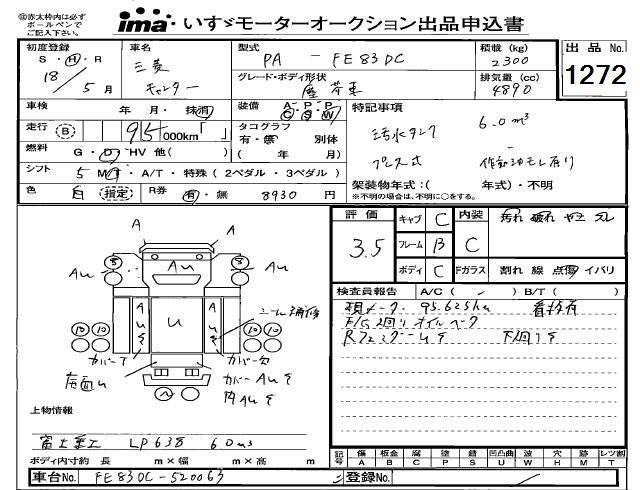 ◎赤太枠内は必ずボールペンでご記入下さい。
ima いすゞモーターオークション出品申込書
出品 No.
1272
初度登録 S・H・R 18 / 5 月
車名 三菱 キャンター
型式 PA - FE83DC
グレード・ボディ形状 塵芥車
積載 (kg) 2300
排気量 (cc) 4890
車検 年・月・抹消
装備 A・P・P C・S・W
走行 (B) 95 000km「 」
タコグラフ 有・無 別体 ( 年 / 月)
燃料 G・D・HV 他( )
シフト 5 MT・A/T・特殊(2ペダル・3ペダル)
色 白 (指定)
R券 有・無 8930 円
特記事項
汚水タンク 6.0m³
プレス式 作動油モレ有り
架装物年式:( 年式)・不明
※不明の場合は、不明に○をする。
評価 3.5
キャブ C
フレーム B
ボディ C
内装 C
Fガラス
汚れ 破れ
割れ 線 点傷 イバリ
検査員報告 A/C ( ) B/T ( )
現メーター 95.625km
下回りサ
A A
Au Au Au
U
カバーT カバー欠
カバーAuサ
上物情報
富士重工 LP638 6.0m³
ボディ内寸約 長 m×幅 m×高 m
車台No. FE83DC-520063
登録No.
記号 傷 A 板金 B 腐 C 塗 P 錆 S 凹凸曲 U 波 W 穴 H M レツ割 T